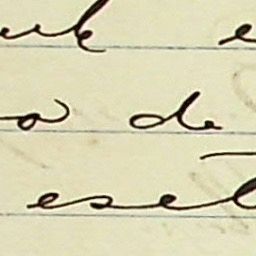 uk e
a de
eset